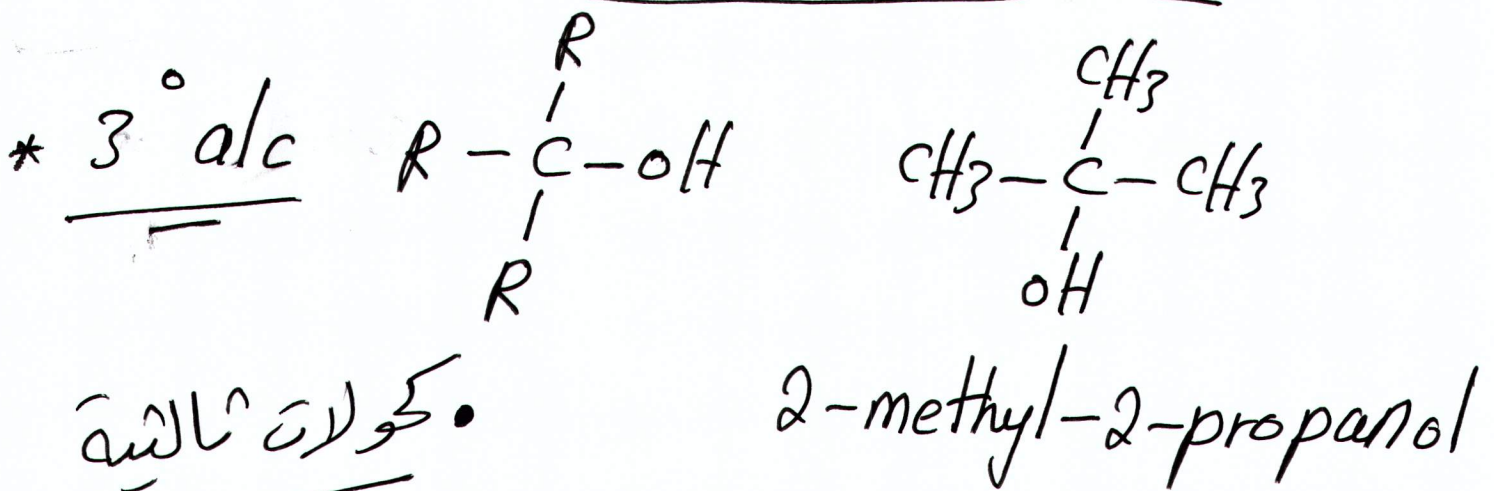 R CH3
* 3° alc R - C - OH CH3 - C - CH3
R OH
كحولات ثالثية •
2-methyl-2-propanol